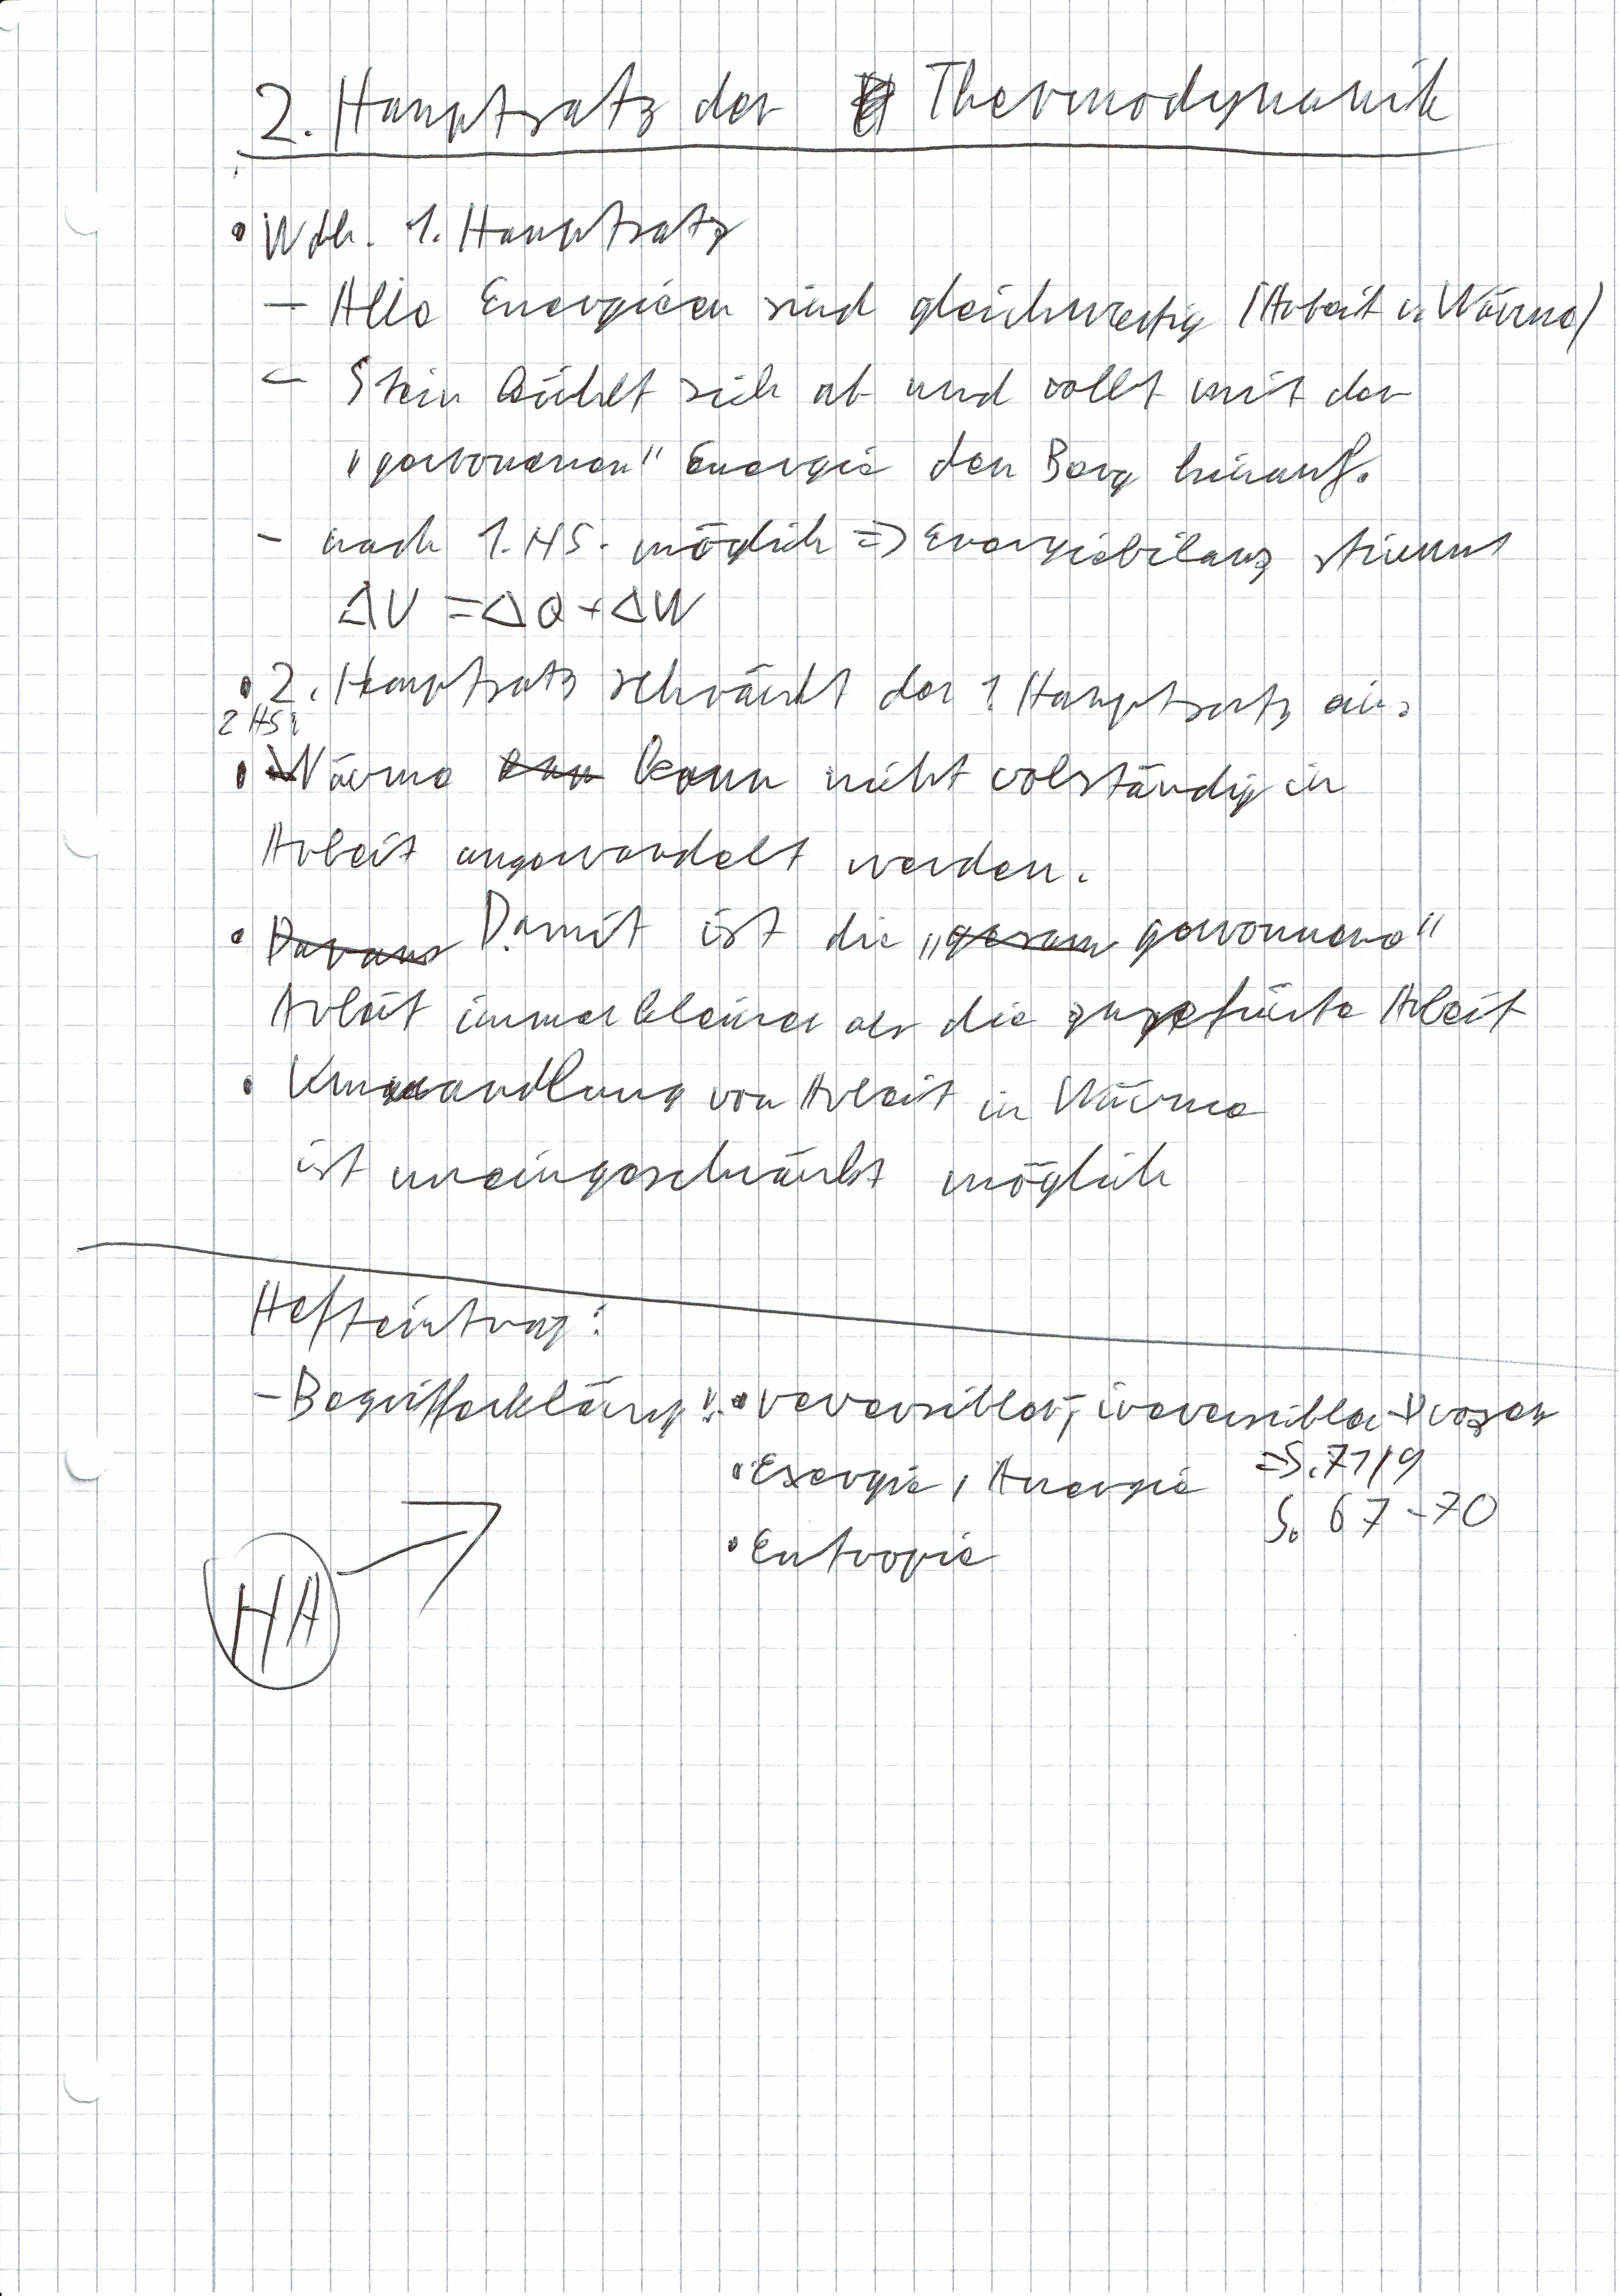 2. Hauptsatz der Thermodynamik
• Wdh. 1. Hauptsatz
– Alle Energieen sind gleichwertig (Arbeit u. Wärme)
– Stein kühlt sich ab und rollt mit der
"gewonnenen" Energie den Berg hinauf.
– nach 1. HS. möglich => Energiebilanz stimmt
ΔU = ΔQ + ΔW
• 2. Hauptsatz schränkt den 1. Hauptsatz ein:
2 HS:
• Wärme kann nicht volständig in
Arbeit umgewandelt werden.
• Damit ist die „gewonnene"
Arbeit immer kleiner als die zugefürte Arbeit
• Umwandlung von Arbeit in Wärme
ist uneingeschränkt möglich
Hefteintrag:
– Begriffserklärung: • reversibler, irreversibler Prozess
• Exergie, Anergie => S. 71/9
S. 67-70
• Entropie
HA